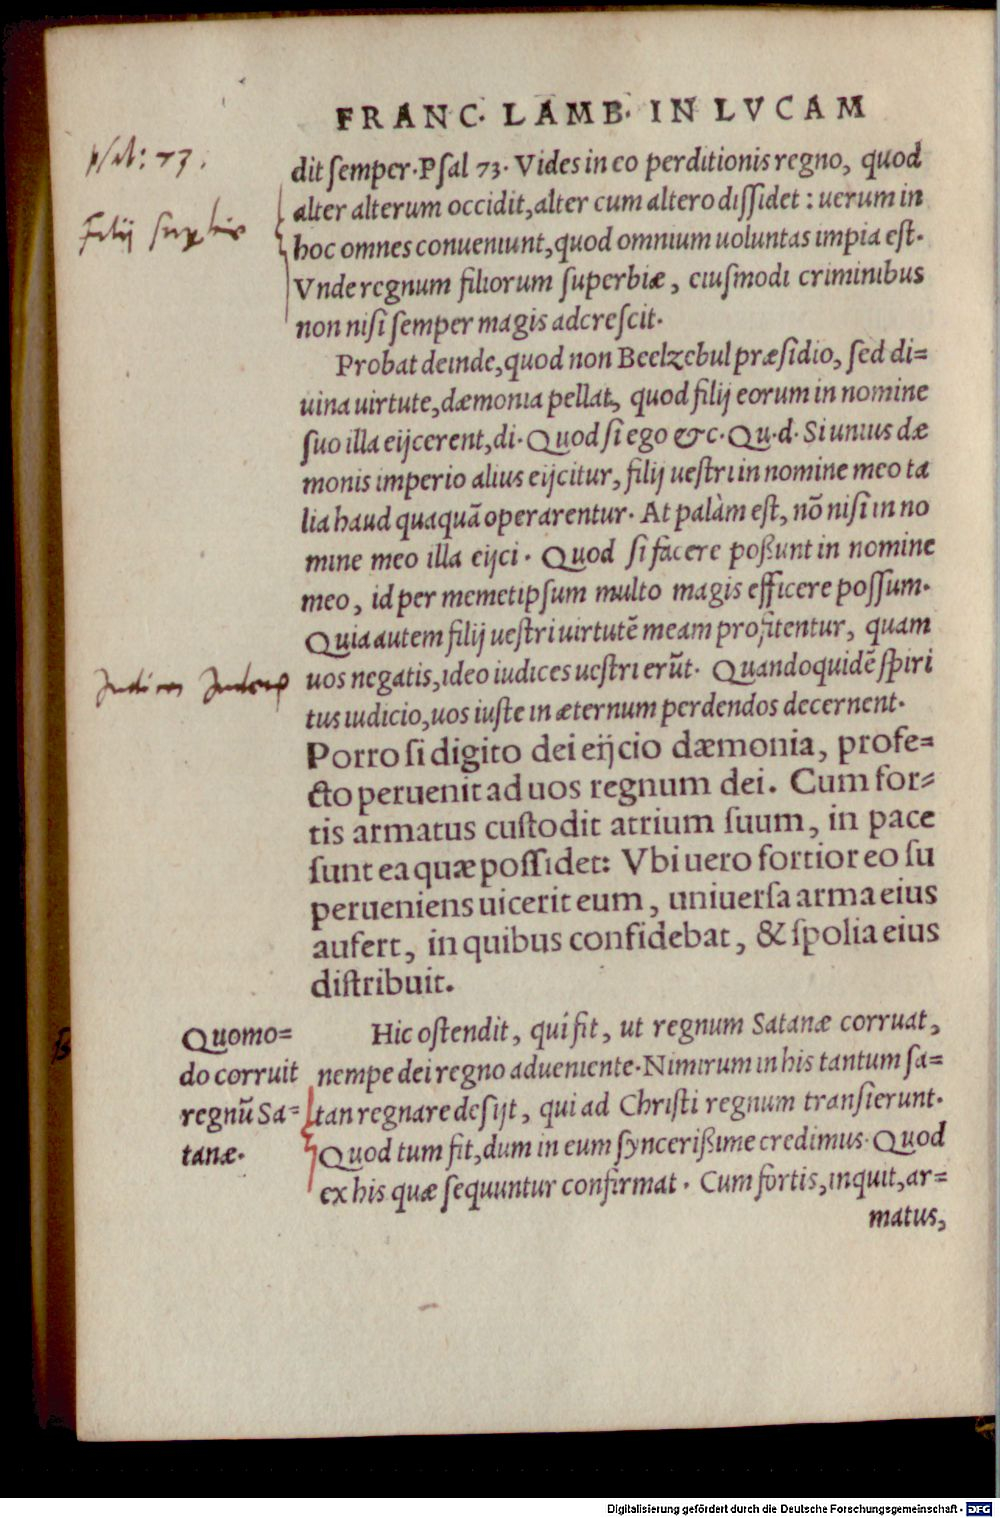 FRANC. LAMB. IN LVCAM
Psal: 73.
dit semper. Psal 73. Vides in eo perditionis regno, quod
Filij superbie
alter alterum occidit, alter cum altero dissidet : uerum in
hoc omnes conueniunt, quod omnium uoluntas impia est.
Vnde regnum filiorum superbiæ, eiusmodi criminibus
non nisi semper magis adcrescit.
Probat deinde, quod non Beelzebul præsidio, sed di=
uina uirtute, dæmonia pellat, quod filij eorum in nomine
suo illa eijcerent, di. Quod si ego &c. Qu.d. Si unius dæ
monis imperio alius eijcitur, filij uestri in nomine meo ta
lia haud quaquā operarentur. At palàm est, nō nisi in no
mine meo illa eijci. Quod si facere poßunt in nomine
meo, id per memetipsum multo magis efficere possum.
Quia autem filij uestri uirtutē meam profitentur, quam
uos negatis, ideo iudices uestri erūt. Quandoquidē spiri
tus iudicio, uos iuste in æternum perdendos decernent.
Porro si digito dei eijcio dæmonia, profe=
cto peruenit ad uos regnum dei. Cum for=
tis armatus custodit atrium suum, in pace
sunt ea quæ possidet: Vbi uero fortior eo su
perueniens uicerit eum, uniuersa arma eius
aufert, in quibus confidebat, & spolia eius
distribuit.
Quomo=
do corruit
regnū Sa=
tanæ.
Hic ostendit, quî fit, ut regnum Satanæ corruat,
nempe dei regno adueniente. Nimirum in his tantum sa=
tan regnare desijt, qui ad Christi regnum transierunt.
Quod tum fit, dum in eum syncerißime credimus. Quod
ex his quæ sequuntur confirmat. Cum fortis, inquit, ar=
matus,
Digitalisierung gefördert durch die Deutsche Forschungsgemeinschaft - DFG